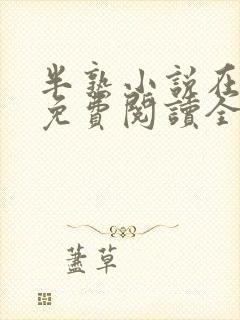 半熟小說在
免費閱讀全
蓋草